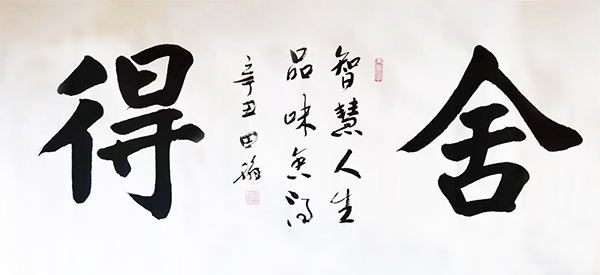 舍
智慧人生
品味舍得
辛丑 田
得